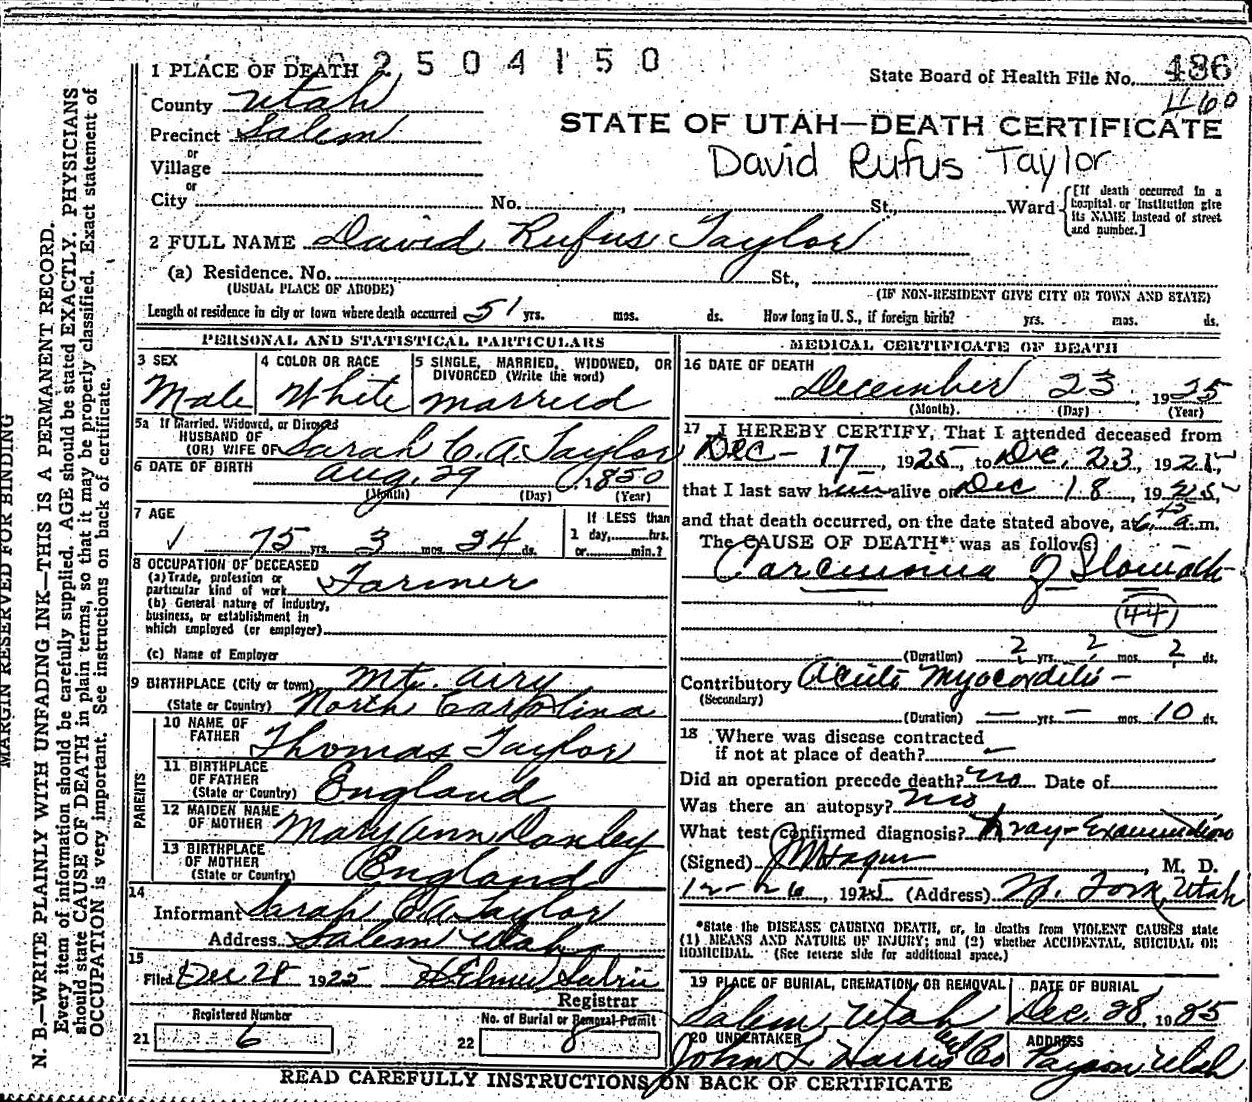 2504150
1 PLACE OF DEATH
State Board of Health File No. 486
460
County Utah
STATE OF UTAH—DEATH CERTIFICATE
Precinct Salem
David Rufus Taylor
or
Village
or
City No. St., Ward
[If death occurred in a hospital or institution give its NAME instead of street and number.]
2 FULL NAME David Rufus Taylor
(a) Residence. No. St.,
(USUAL PLACE OF ABODE) (IF NON-RESIDENT GIVE CITY OR TOWN AND STATE)
Length of residence in city or town where death occurred 51 yrs. mos. ds. How long in U. S., if foreign birth? yrs. mos. ds.
PERSONAL AND STATISTICAL PARTICULARS
3 SEX 4 COLOR OR RACE 5 SINGLE, MARRIED, WIDOWED, OR DIVORCED (Write the word)
Male White Married
5a If Married, Widowed, or Divorced
HUSBAND OF
(OR) WIFE OF Sarah C. A. Taylor
6 DATE OF BIRTH Aug. 29, 1850
(Month) (Day) (Year)
7 AGE
75 yrs. 3 mos. 24 ds.
If LESS than 1 day, hrs. or min.?
8 OCCUPATION OF DECEASED
(a) Trade, profession or particular kind of work Farmer
(b) General nature of industry, business, or establishment in which employed (or employer)
(c) Name of Employer
9 BIRTHPLACE (City or town) Mt. Airy
(State or Country) North Carolina
PARENTS
10 NAME OF FATHER Thomas Taylor
11 BIRTHPLACE OF FATHER (State or Country) England
12 MAIDEN NAME OF MOTHER Mary Ann Danley
13 BIRTHPLACE OF MOTHER (State or Country) England
14
Informant Sarah C A Taylor
Address Salem Utah
15
Filed Dec 28 1925
Registrar
21 Registered Number 6
22 No. of Burial or Removal Permit 8
MEDICAL CERTIFICATE OF DEATH
16 DATE OF DEATH
December 23, 1925
(Month) (Day) (Year)
17 I HEREBY CERTIFY, That I attended deceased from
Dec - 17, 1925, to Dec. 23, 192
that I last saw him alive on Dec 18, 1925,
and that death occurred, on the date stated above, at a. m.
The CAUSE OF DEATH* was as follows:
Carcinoma of Stomach
44
(Duration) 2 yrs. 2 mos. 2 ds.
Contributory Acute Myocarditis -
(Secondary)
(Duration) — yrs. — mos. 10 ds.
18 Where was disease contracted
if not at place of death?
Did an operation precede death? no Date of
Was there an autopsy? no
What test confirmed diagnosis? X ray - Examination
(Signed) J M Hague, M. D.
12-26, 1925 (Address) Utah
*State the DISEASE CAUSING DEATH, or, in deaths from VIOLENT CAUSES state
(1) MEANS AND NATURE OF INJURY; and (2) whether ACCIDENTAL, SUICIDAL OR
HOMICIDAL. (See reverse side for additional space.)
19 PLACE OF BURIAL, CREMATION, OR REMOVAL DATE OF BURIAL
Salem, Utah Dec. 28, 1925
20 UNDERTAKER ADDRESS
John L. Harris Co Payson, Utah
READ CAREFULLY INSTRUCTIONS ON BACK OF CERTIFICATE
MARGIN RESERVED FOR BINDING
N. B.—WRITE PLAINLY WITH UNFADING INK—THIS IS A PERMANENT RECORD.
Every item of information should be carefully supplied. AGE should be stated EXACTLY. PHYSICIANS
should state CAUSE OF DEATH in plain terms, so that it may be properly classified. Exact statement of
OCCUPATION is very important. See instructions on back of certificate.